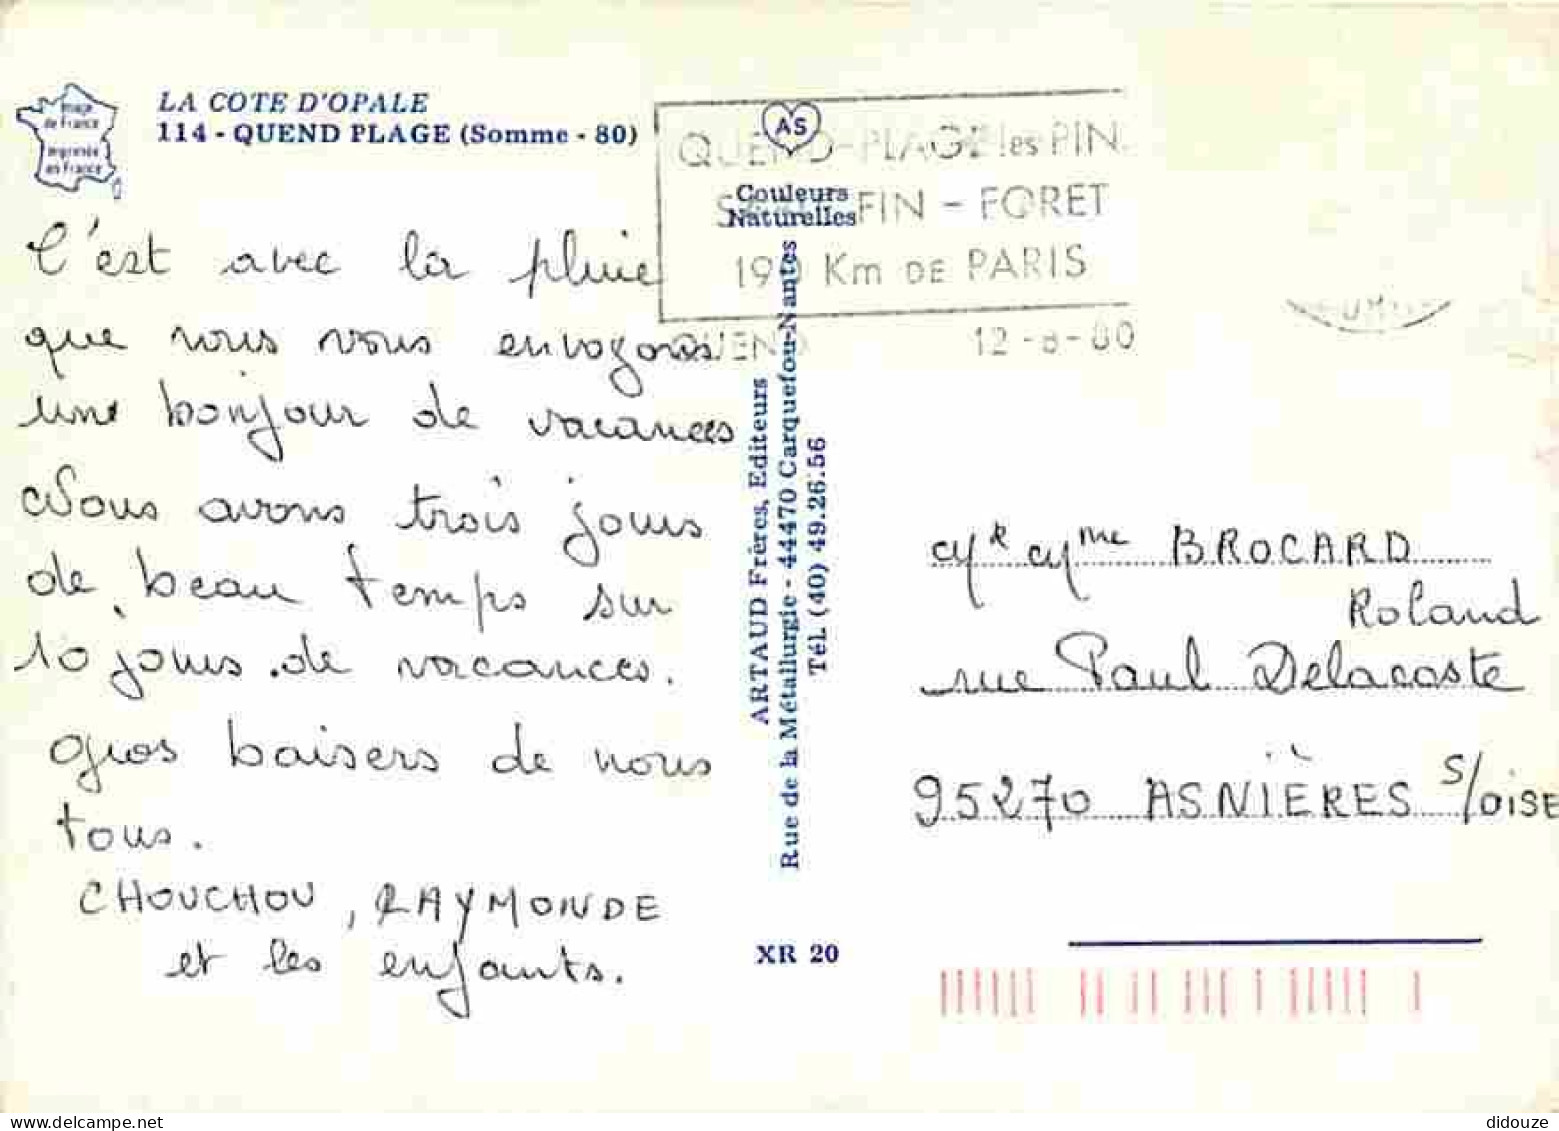 Image
de France
imprimée
en France
LA COTE D'OPALE
114 - QUEND PLAGE (Somme - 80)
AS
Couleurs
Naturelles
QUEND-PLAGE les PIN
FIN - FORET
190 Km DE PARIS
QUEND 12-8-80
C'est avec la pluie
que nous vous envoyons
une bonjour de vacances
Nous avons trois jours
de beau temps sur
10 jours de vacances.
Gros baisers de nous
tous.
CHOUCHOU, RAYMONDE
et les enfants.
ARTAUD Frères, Editeurs
Rue de la Métallurgie - 44470 Carquefou-Nantes
Tél. (40) 49.26.56
XR 20
Mr Mme BROCARD
Roland
rue Paul Delacoste
95270 ASNIÈRES S/OISE
didouze